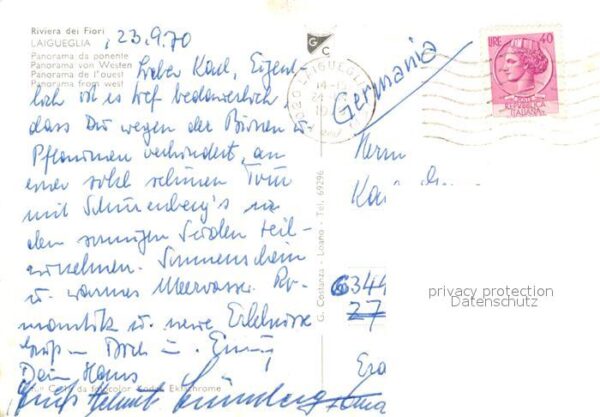 Riviera dei Fiori
LAIGUEGLIA
Panorama da ponente
Panorama von Westen
Panorama de l'ouest
Panorama from west
, 23.9.70
Lieber Karl, Eigent-
lich ist es tief bedauerlich
dass Du wegen der Birnen u.
Pflaumen verhindert, an
einer solch schönen Tour
mit Schünenberg's in
den sonnigen Süden teil-
zunehmen. Sonnenschein
u. warmes Meerwasser. Ro-
mantik u. neue Erlebnisse
Gruß
Dein Hans
Gruß Helmut
da fotocolor Kodak Ektachrome
G C
LAIGUEGLIA
Germania
LIRE 40
REPUBBLICA
ITALIANA
Herrn
G. Costanza - Loano - Tel. 69296
6344
27
privacy protection
Datenschutz